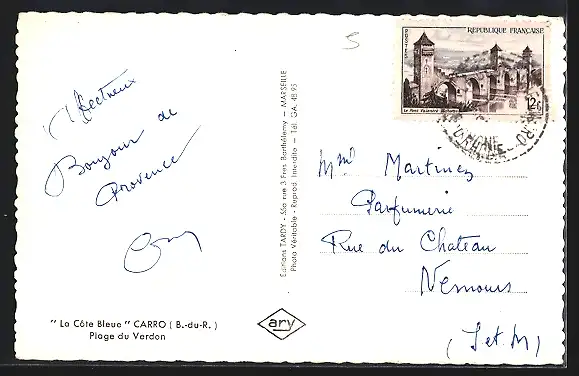 5
RÉPUBLIQUE FRANÇAISE
POSTES
12F
Le Pont Valentré Cahors
Affectueux
Bonjour de
Provence
Mme Martinez
Parfumerie
Rue du Chateau
Nemours
(S et M)
Editions TARDY - 55a rue 3 Fres Barthélemy - MARSEILLE
Photo Véritable - Reprod. Interdite - Tél. GA. 48 95
"La Côte Bleue" CARRO (B.-du-R.)
Plage du Verdon
ary